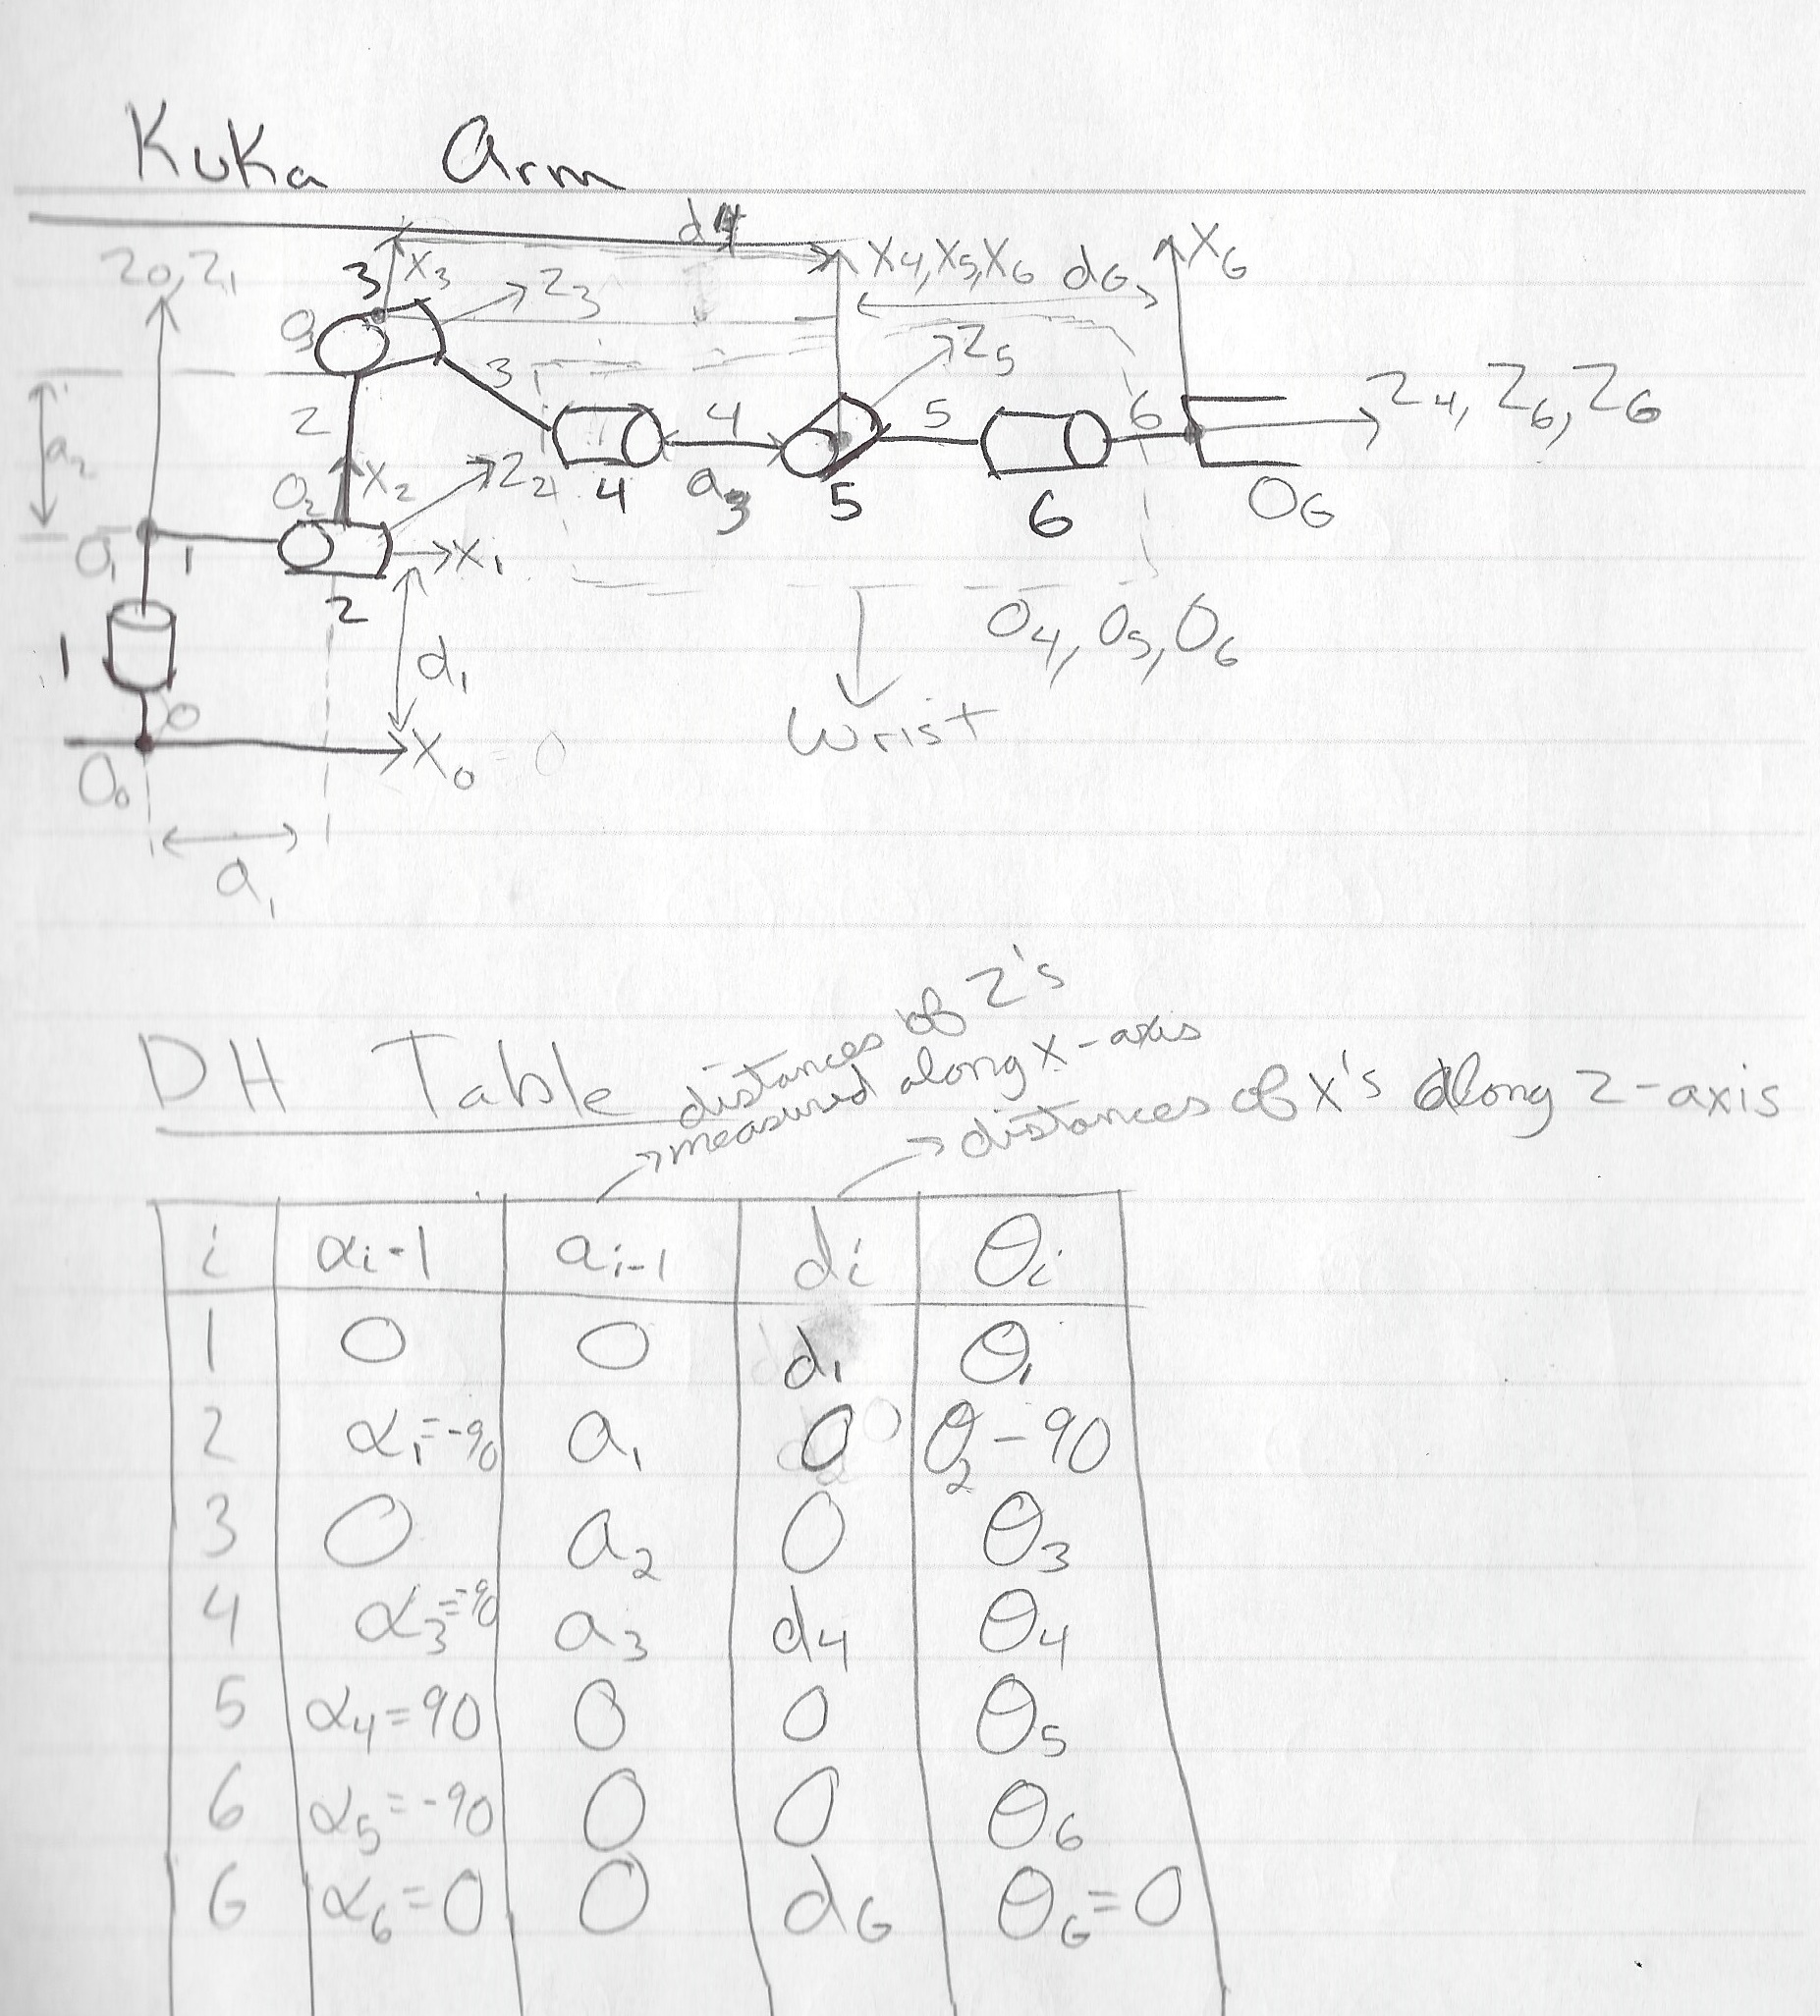 Kuka Arm
d4
Z0,Z1
3
X3
Z3
X4,X5,X6
dG
XG
O3
3
Z5
2
4
5
6
Z4, Z6, ZG
a2
O2
X2
Z2
4
a3
5
6
OG
O1
1
X1
2
1
d1
O4, O5, O6
0
Wrist
X0 = 0
O0
a1
DH Table
distances of Z's
measured along X-axis
distances of X's along Z-axis
i αi-1 ai-1 di θi
1 0 0 d1 θ1
2 α1=-90 a1 0 θ2-90
3 0 a2 0 θ3
4 α3=-90 a3 d4 θ4
5 α4=90 0 0 θ5
6 α5=-90 0 0 θ6
G α6=0 0 dG θG=0